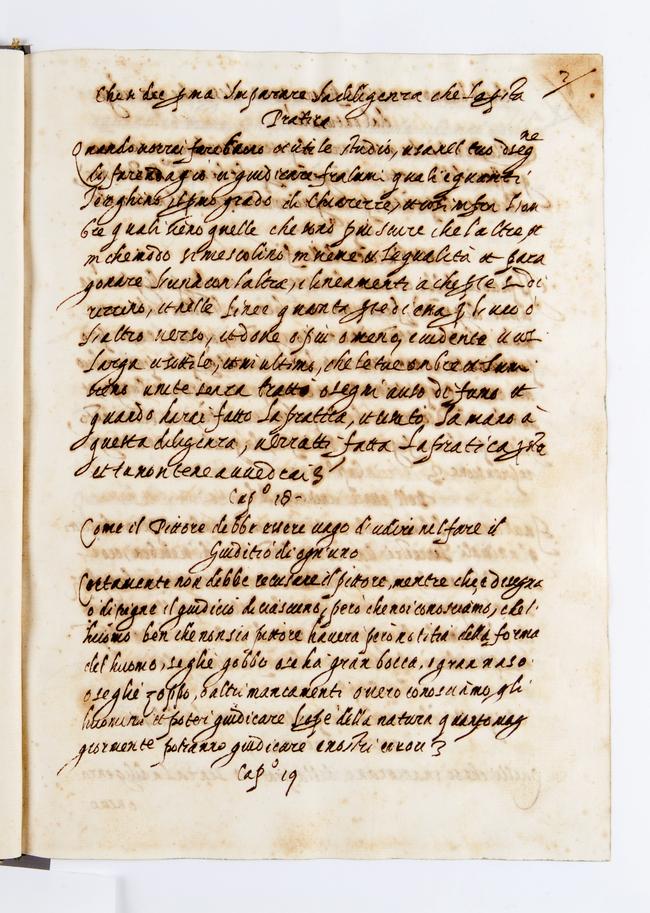 Che si dee prima Imparare la diligenza che la presta
Pratica
Quando vorrai fare buono et utile studio, usa nel tuo diseg
ne
di fare adagio et giudicare fra lumi quali e quanti
tenghino, il primo grado di Chiarezze, et cosi infra l'om
bre quali sieno quelle che sono piu scure che l'altre, et
in che modo si mescolino insieme et l'equalità et para
gonare l'una con l'altra, i lineamenti a che parte si di
rizzino, et nelle linee quanta parte di essa per l'uno o
l'altro verso, et dove o piu o meno, evidente et cosi
larga o sottile, et in ultimo, che le tue ombre et lumi
sieno unite senza tratti o segni a uso di fumo et
quando harai fatto la pratica, et usato, la mano à
questa diligenza, verratti fatta la pratica presto
et tu non te ne avvedrai
Capo 18
Come il Pittore debbe essere vago d'udire nel fare il
Giuditio di ogn'uno
Certamente non debbe recusare il pittore, mentre che e disegna
o dipigne il giudicio di ciascuno, pero che noi conosciamo, che l'
huomo ben che non sia pittore havera però notitia della forma
del huomo, se gliè gobbo o se ha gran bocca, o gran naso
o se gliè zoppo, o altri mancamenti o vero conosciamo gli
huomini et poter giudicare l'ope della natura quanto mag
giormente potranno giudicare i nostri errori
Capo 19